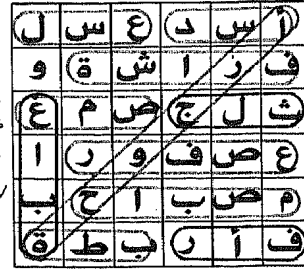 أ س د ع س ل
ف ر ا ش ة و
ث ل ج ض م ع
ع ص ف و ر ا
م ص ب ا ح ب
ف أ ر ب ط ة